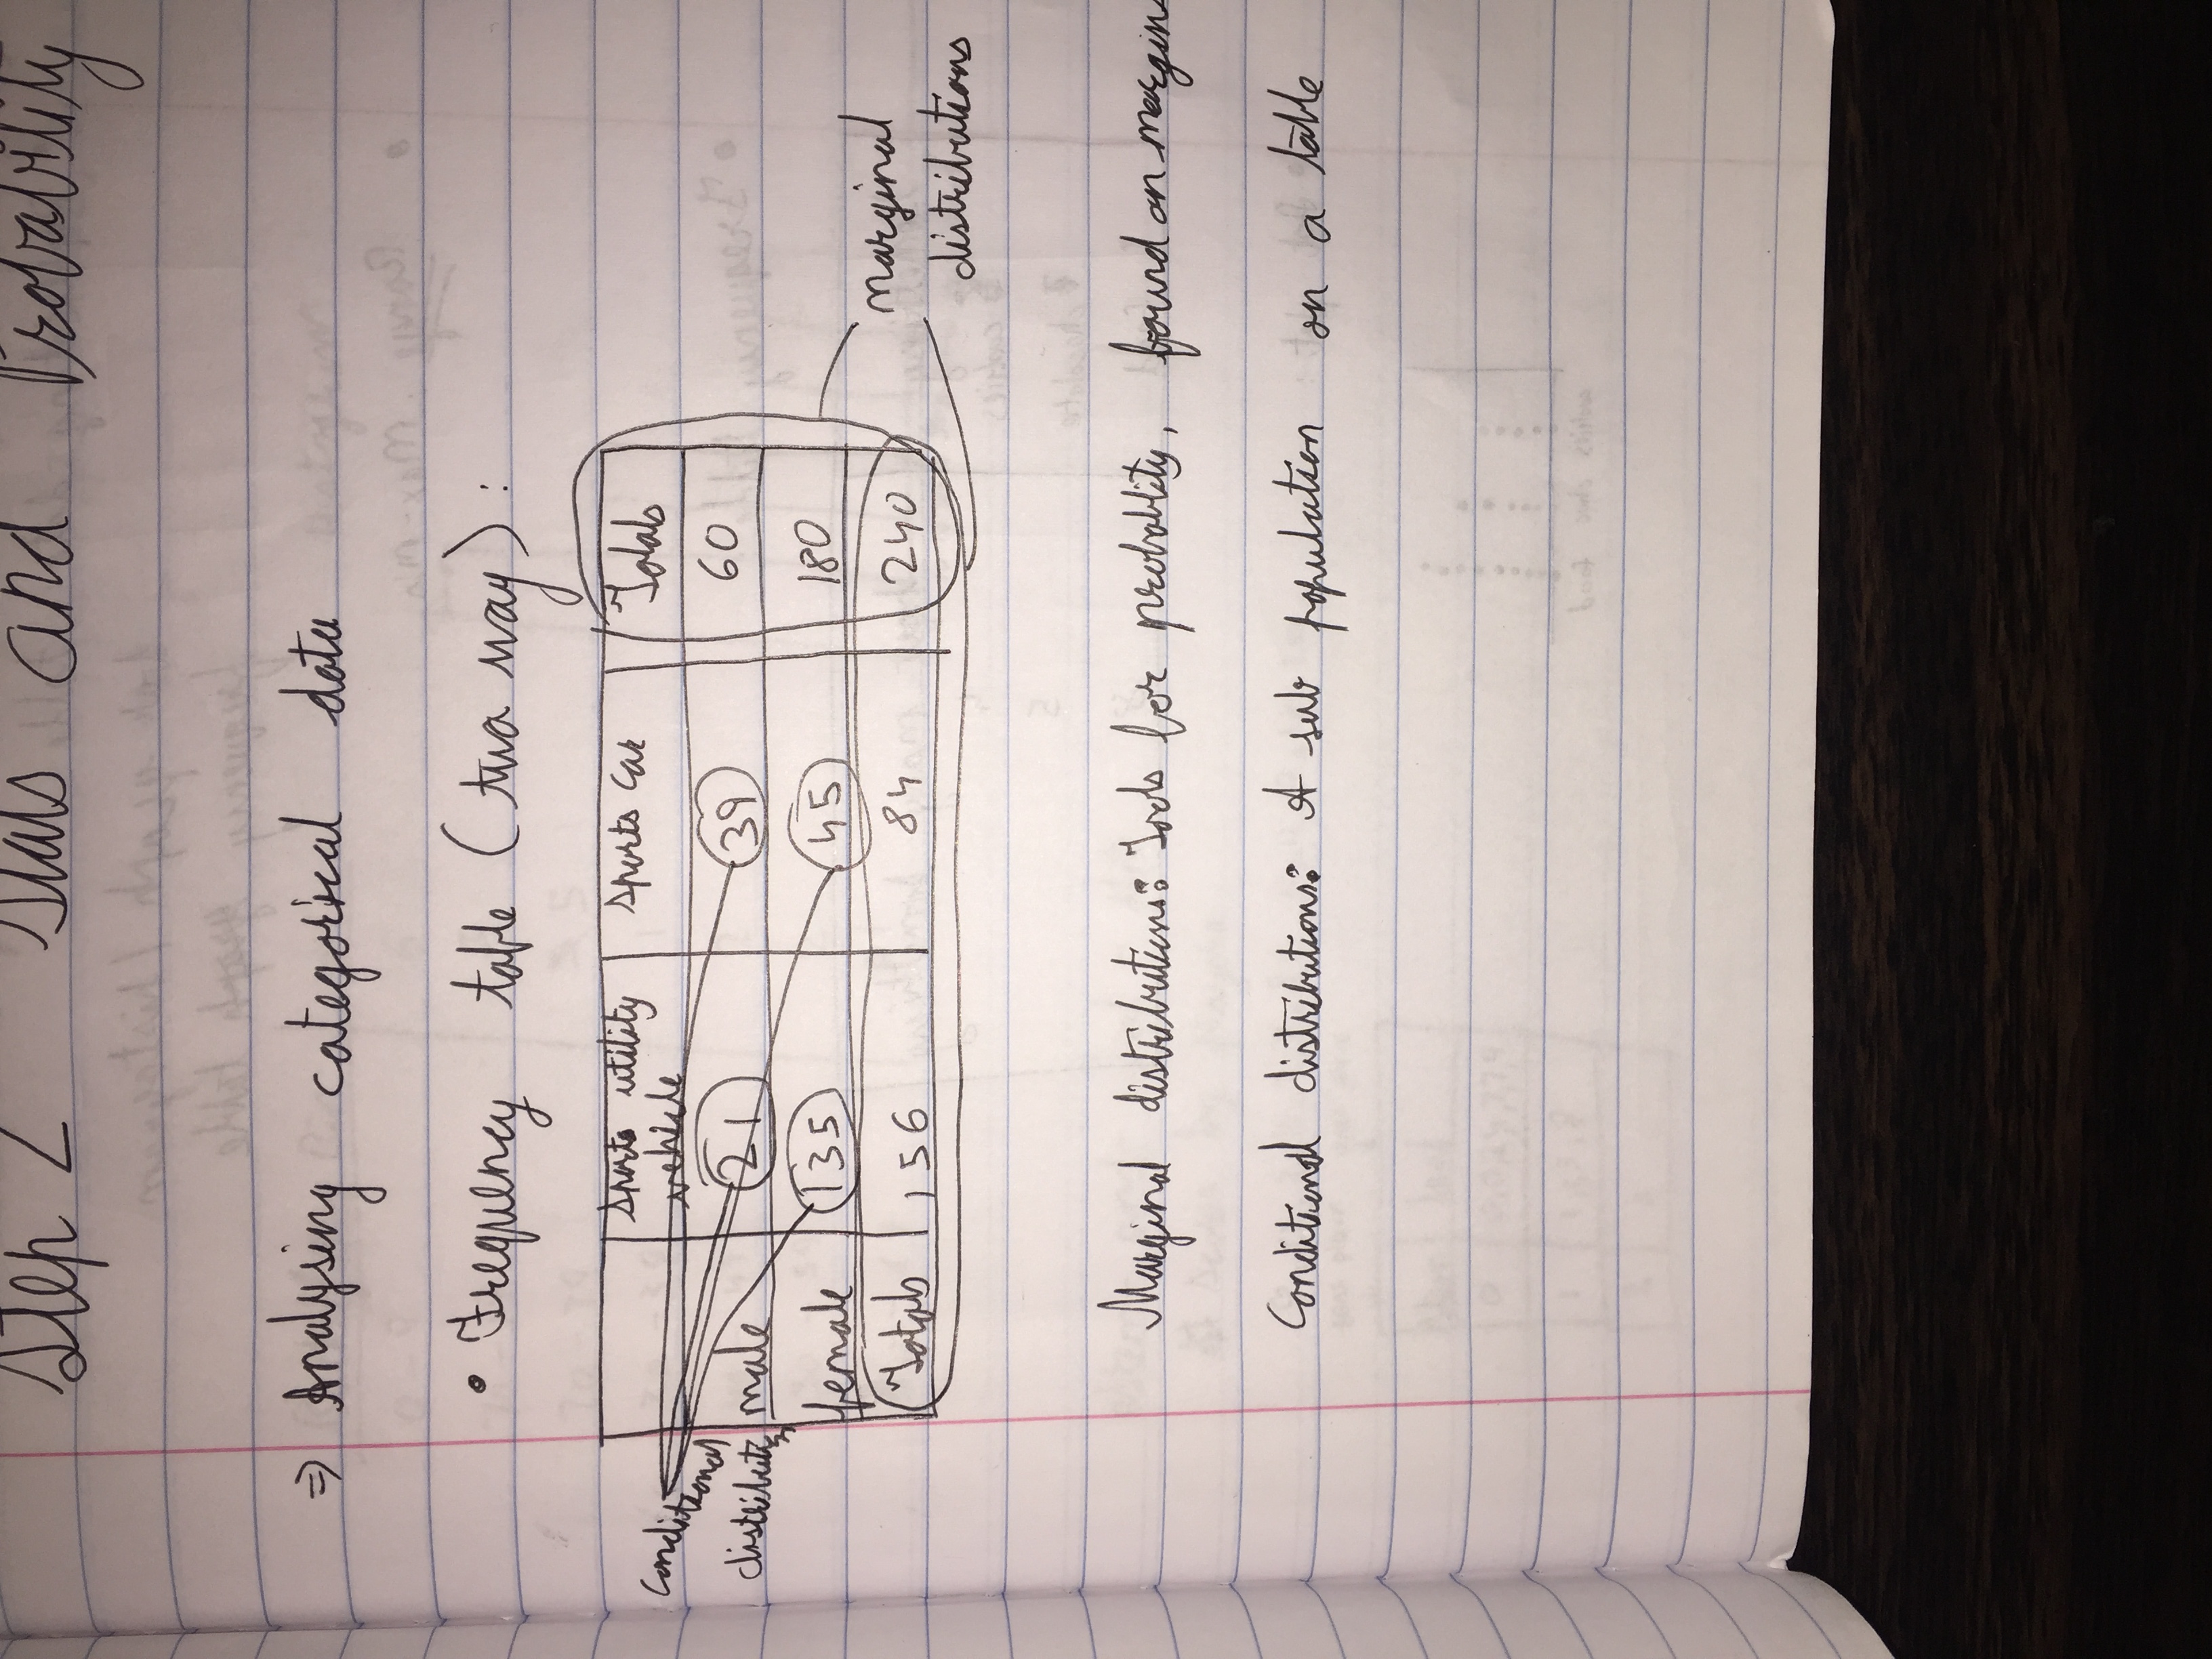 Step 2 Stats and Probability
⇒ Analysing categorical data
• Frequency table (two way) :
Sports utility vehicle Sports car Totals
Conditional distributions
male 21 39 60
female 135 45 180
Totals 156 84 240
marginal distributions
Marginal distributions: Tools for probablity, found on margins
Conditional distributions: A sub population on a table